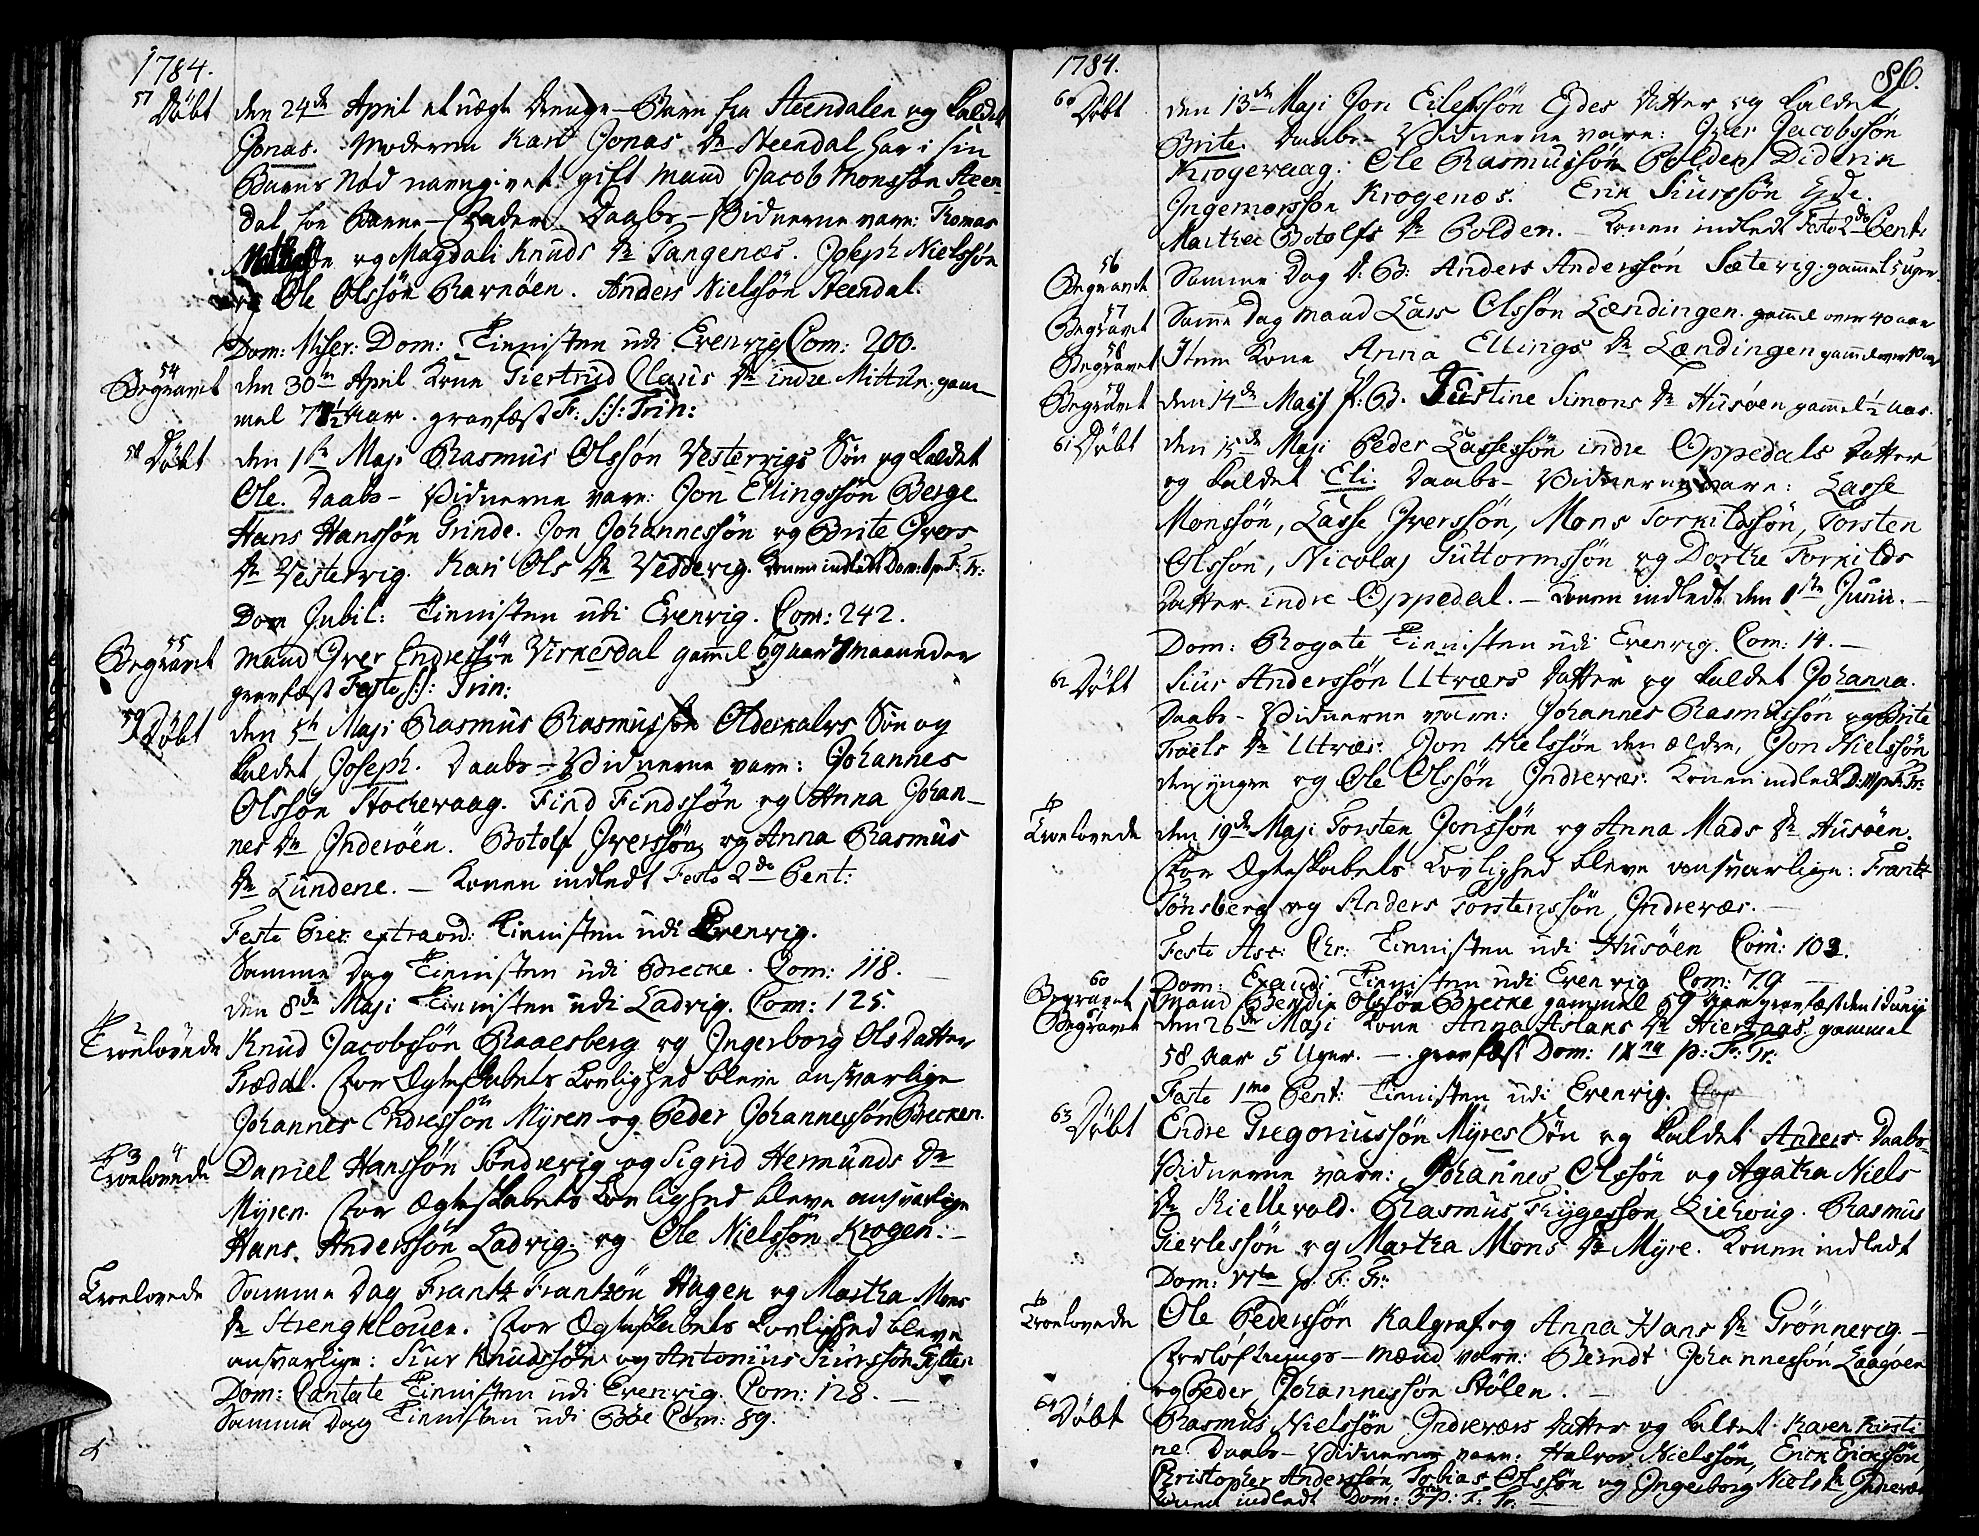 1784.
57 Döbt den 24de April et uægte Drenge-Barn fra Steendalen og kaldet
Jonas. Moderen Kari Jonas Dr Steendal har i sin
Barns Nød navngivet gift Mand Jacob Monssøn Steen-
dal for Barne-Fader. Daabs-Vidnerne vare: Thomas
og Magdali Knuds Dr Tangenæs. Joseph Nielssøn
Ole Olssøn Ravnøen. Anders Nielssøn Steendal.
Dom: Miser: Dom: Tienisten udi Evenvig Com: 200.
54 Begravet den 30te April Kone Giertrud Claus Dr indre Mittun. gam-
mel 7½ Aar. gravfæst F: S:S: Trin:
58 Døbt den 1ste Maji Rasmus Olssøn Vestervigs Søn og kaldet
Ole. Daabs-Vidnerne vare: Jon Ellingssøn Berge
Hans Hanssøn Grinde. Jon Johannessøn og Brite Ivers
Dr Vestervig. Kari Ols Dr Veddevig. Konen indledt Dom: 1 p: F: Tr:
Dom Jubil: Tienisten udi Evenvig. Com: 242.
55 Begravet Mand Iver Endressøn Virkesdal gamel 69 aar 7 maaneder
gravfæst Festo S:S: Trin:
59 Døbt den 5te Maji Rasmus Rasmussøn Oldernalvs Søn og
kaldet Joseph. Daabs-Vidnerne vare: Johannes
Olssøn Stochevaag. Find Findssøn og Anna Johan-
nes Dr Inderøen. Botolf Iverssøn og Anna Rasmus
Dr Lundene. - Konen indledt Festo 2do Pent:
Festo Prec: extraord: Tienisten udi Evenvig.
Samme Dag Tienisten udi Brecke. Com: 118.
den 8de Maji Tienisten udi Ladvig. Com: 125.
Troelovede Knud Jacobssøn Raaesberg og Ingerborg Ols Datter
Trædal. For Ægteskabets Lovlighed bleve ansvarlige
Johannes Endressøn Myren og Peder Johannessøn Brecken.
Troelovede Daniel Hanssøn Søndrevig og Sigrid Hermunds Dr
Myren. For Ægteskabets Lovlighed bleve ansvarlige
Hans Anderssøn Ladvig og Ole Nielssøn Krogen.
Troelovede Samme Dag Frantz Frantzøn Hagen og Martha Mons
Dr Strengklouen. For Ægteskabets Lovlighed bleve
ansvarlige: Siur Knudssøn og Antonius Siurssøn
Dom: Cantate Tienisten udi Evenvig. Com: 128.
Samme Dag Tienisten udi Böe Com: 89.
1784. 86.
60 Døbt den 13de Maji Jon Eilefssøn Eydes Datter og kaldet
Brite. Daabs-Vidnerne vare: Iver Jacobssøn
Krogevaag. Ole Rasmussøn Polden Diderik
Ingemorssøn Krogenæs. Erik Siurssøn Eyde.
Marthee Botolfs Dr Polden. - Konen indledt Festo 2do Pent:
56 Begravet Samme Dag D. B: Anders Anderssøn Sætevig: gammel 5 uger.
57 Begravet Same Dag Mand Lars Olssøn Lændingen. gammel over 40 aar
58 Begravet Item Kone Anna Ellings Dr Lændingen gammel over
59 Begravet den 14de Maji P: B. Justine Simons Dr Husøen gammel ½ aar.
61 Døbt den 15de Maji Peder Lassessøn indre Oppedals Datter
og kaldet Eli. Daabs-Vidnerne vare: Lasse
Monssøn, Lasse Iverssøn, Mons Torkildssøn, Torsten
Olssøn, Nicolaj Guttormssøn og Dorthe Torkilds
Datter indre Oppedal. - Konen indledt den 1ste Junii. -
Dom: Rogate Tienisten udi Evenvig. Com: 14. -
62 Døbt Siur Anderssøn Utværs Datter og kaldet Johanna.
Daabs-Vidnerne vare: Johannes Rasmussøn og Brite
Troels Dr Utvær: Jon Nielssøn den ældre, Jon Nielssøn
den yngre og Ole Olssøn Indrevær. Konen indledt D: p: F: Tr:
Troelovede den 19de Maji Torsten Jonssøn og Anna Mads Dr Husøen.
For Ægteskabets Lovlighed bleve ansvarlige: Frantz
Tønsberg og Anders Torstenssøn Indrevær. -
Festo Asc: Chr: Tienisten udi Husøen Com: 103.
Dom: Exaudi Tienisten udi Evenvig Com: 79 -
60 Begravet Mand Bendix Olssøn Brecke gammel 59 Aar gravfæst den 1 Junii
61 Begravet den 26de Maji Kone Anna Aslaks Dr Hiertaas gammel
58 Aar 5 Uger. - gravfæst Dom: IXna p: F: Tr:
Festo 1mo Pent: Tienisten udi Evenvig.
63 Døbt Endre Gregoriussøn Myres Søn og kaldet Anders. Daabs-
Vidnerne vare: Johannes Olssøn og Agatha Niels
Dr Kiellevold. Rasmus Tryggessøn Rasmus
Gierlessøn og Martha Mons Dr Myre. Konen indledt
Dom: VIta p: F: Tr:
Troelovede Ole Pederssøn Kalgraf og Anna Hans Dr Grønnevig. -
Forløftnings-Mænd vare: Berndt Johannessøn Laagøen
og Peder Johannessøn Stølen. -
64 Døbt Rasmus Nielssøn Indreværs Datter og kaldet Karen Kirsti-
ne. Daabs-Vidnerne vare: Halvor Nielssøn, Erick Erickssøn,
Christopher Anderssøn Tobias Olssøn og Ingerborg Niels Dr Indrevær
Konen indledt Dom: p: F: Tr: